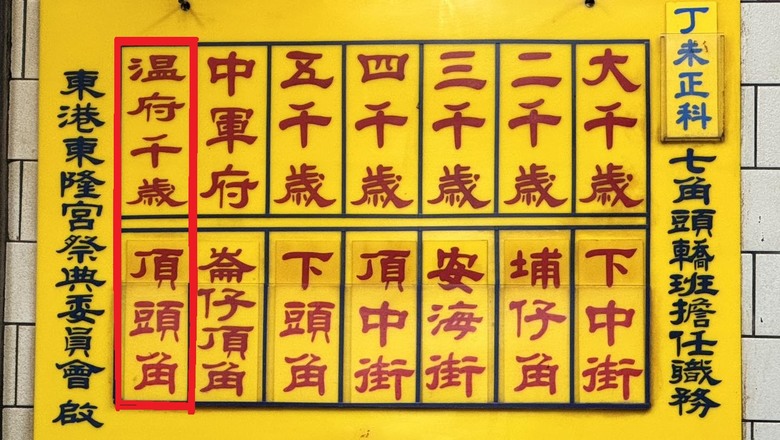 丁未正科
七角頭轎班擔任職務
大千歲
下中街
二千歲
埔仔角
三千歲
安海街
四千歲
頂中街
五千歲
下頭角
中軍府
崙仔頂角
温府千歲
頂頭角
東港東隆宮祭典委員會啟